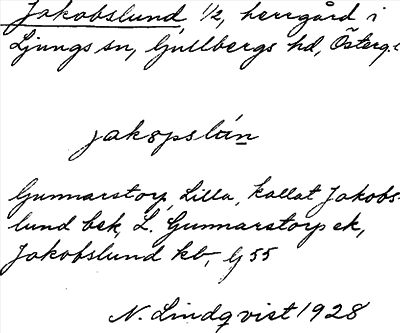 Jakobslund, 1/2, herrgård i
Ljungs sn, Gullbergs hd, Österg.
jakɔpslún
Gunnarstorp, Lilla, kallat Jakobs-
lund bek, L. Gunnarstorp ek,
Jakobslund kb, G 55
N. Lindqvist 1928